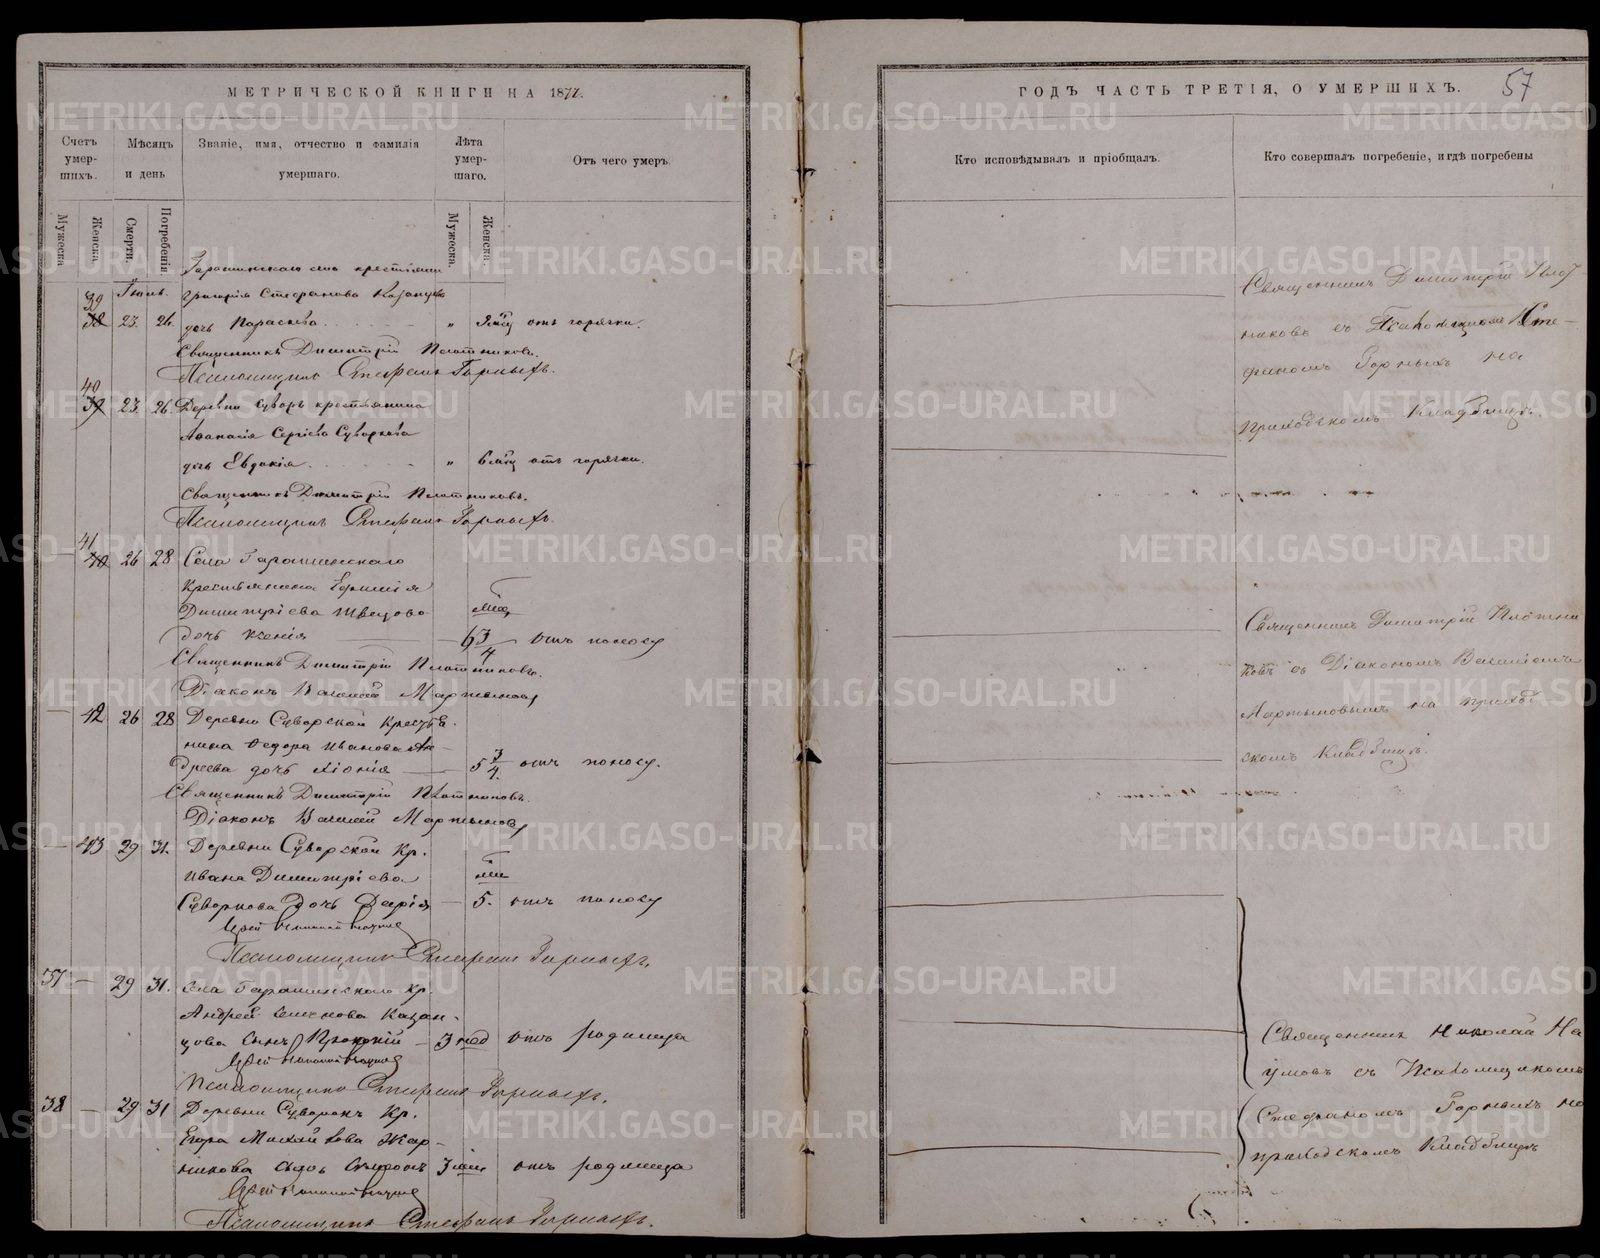 МЕТРИЧЕСКОЙ КНИГИ НА 1877.
Счетъ умер-шихъ.
Мѣсяцъ и день
Званіе, имя, отчество и фамилія умершаго.
Лѣта умер-шаго.
Отъ чего умеръ.
Мужеска
Женска
Смерти.
Погребенія.
Мужеска.
Женска.
крестьянина
39 Іюль. Григорія Стефанова Казанцева
38 23. 26. дочь Параскева " отъ горячки.
Священникъ Димитрій Плотниковъ.
Псаломщикъ Стефанъ Горныхъ.
40
39 23. 26. Деревни крестьянина
Аѳанасія Сергіева Суворкова
дочь Евдокія " отъ горячки.
Священникъ Димитрій Плотниковъ.
Псаломщикъ Стефанъ Горныхъ.
41
40 26 28 Села
Крестьянина
Димитріева Швецова
дочь Ксенія 3/4 отъ поносу
Священникъ Димитрій Плотниковъ.
Діаконъ Василій Мартыновъ
42 26 28 Деревни Суворской Крестья-
нина Ѳедора Иванова Ан-
дреева дочь 5 3/4. отъ поносу.
Священникъ Димитрій Плотниковъ.
Діаконъ Василій Мартыновъ
43 29 31. Деревни Суворской Кр.
Ивана Димитріева
Суворкова дочь Дарія 5. отъ поносу
Іерей Николай Наумовъ
Псаломщикъ Стефанъ Горныхъ.
37 29 31. Села Кр.
Андрея Казан-
цова сынъ Прокопій 3 нед отъ родимца
Іерей Николай Наумовъ
Псаломщикъ Стефанъ Горныхъ.
38 29 31 Деревни Кр.
Егора
никова сынъ 3 отъ родимца
Іерей Николай Наумовъ
Псаломщикъ Стефанъ Горныхъ.
ГОДЪ ЧАСТЬ ТРЕТІЯ, О УМЕРШИХЪ.
57
Кто исповѣдывалъ и пріобщалъ.
Кто совершалъ погребеніе, и гдѣ погребены
Священникъ Димитрій Плот-
никовъ съ Псаломщикомъ Сте-
фаномъ Горныхъ на
приходскомъ Кладбищѣ.
Священникъ Димитрій Плотни
ковъ съ Діакономъ Василіемъ
Мартыновымъ на приход
скомъ Кладбищѣ.
Священникъ Николай На
умовъ съ Псаломщикомъ
Стефаномъ Горныхъ на
приходскомъ Кладбищѣ
METRIKI.GASO-URAL.RU